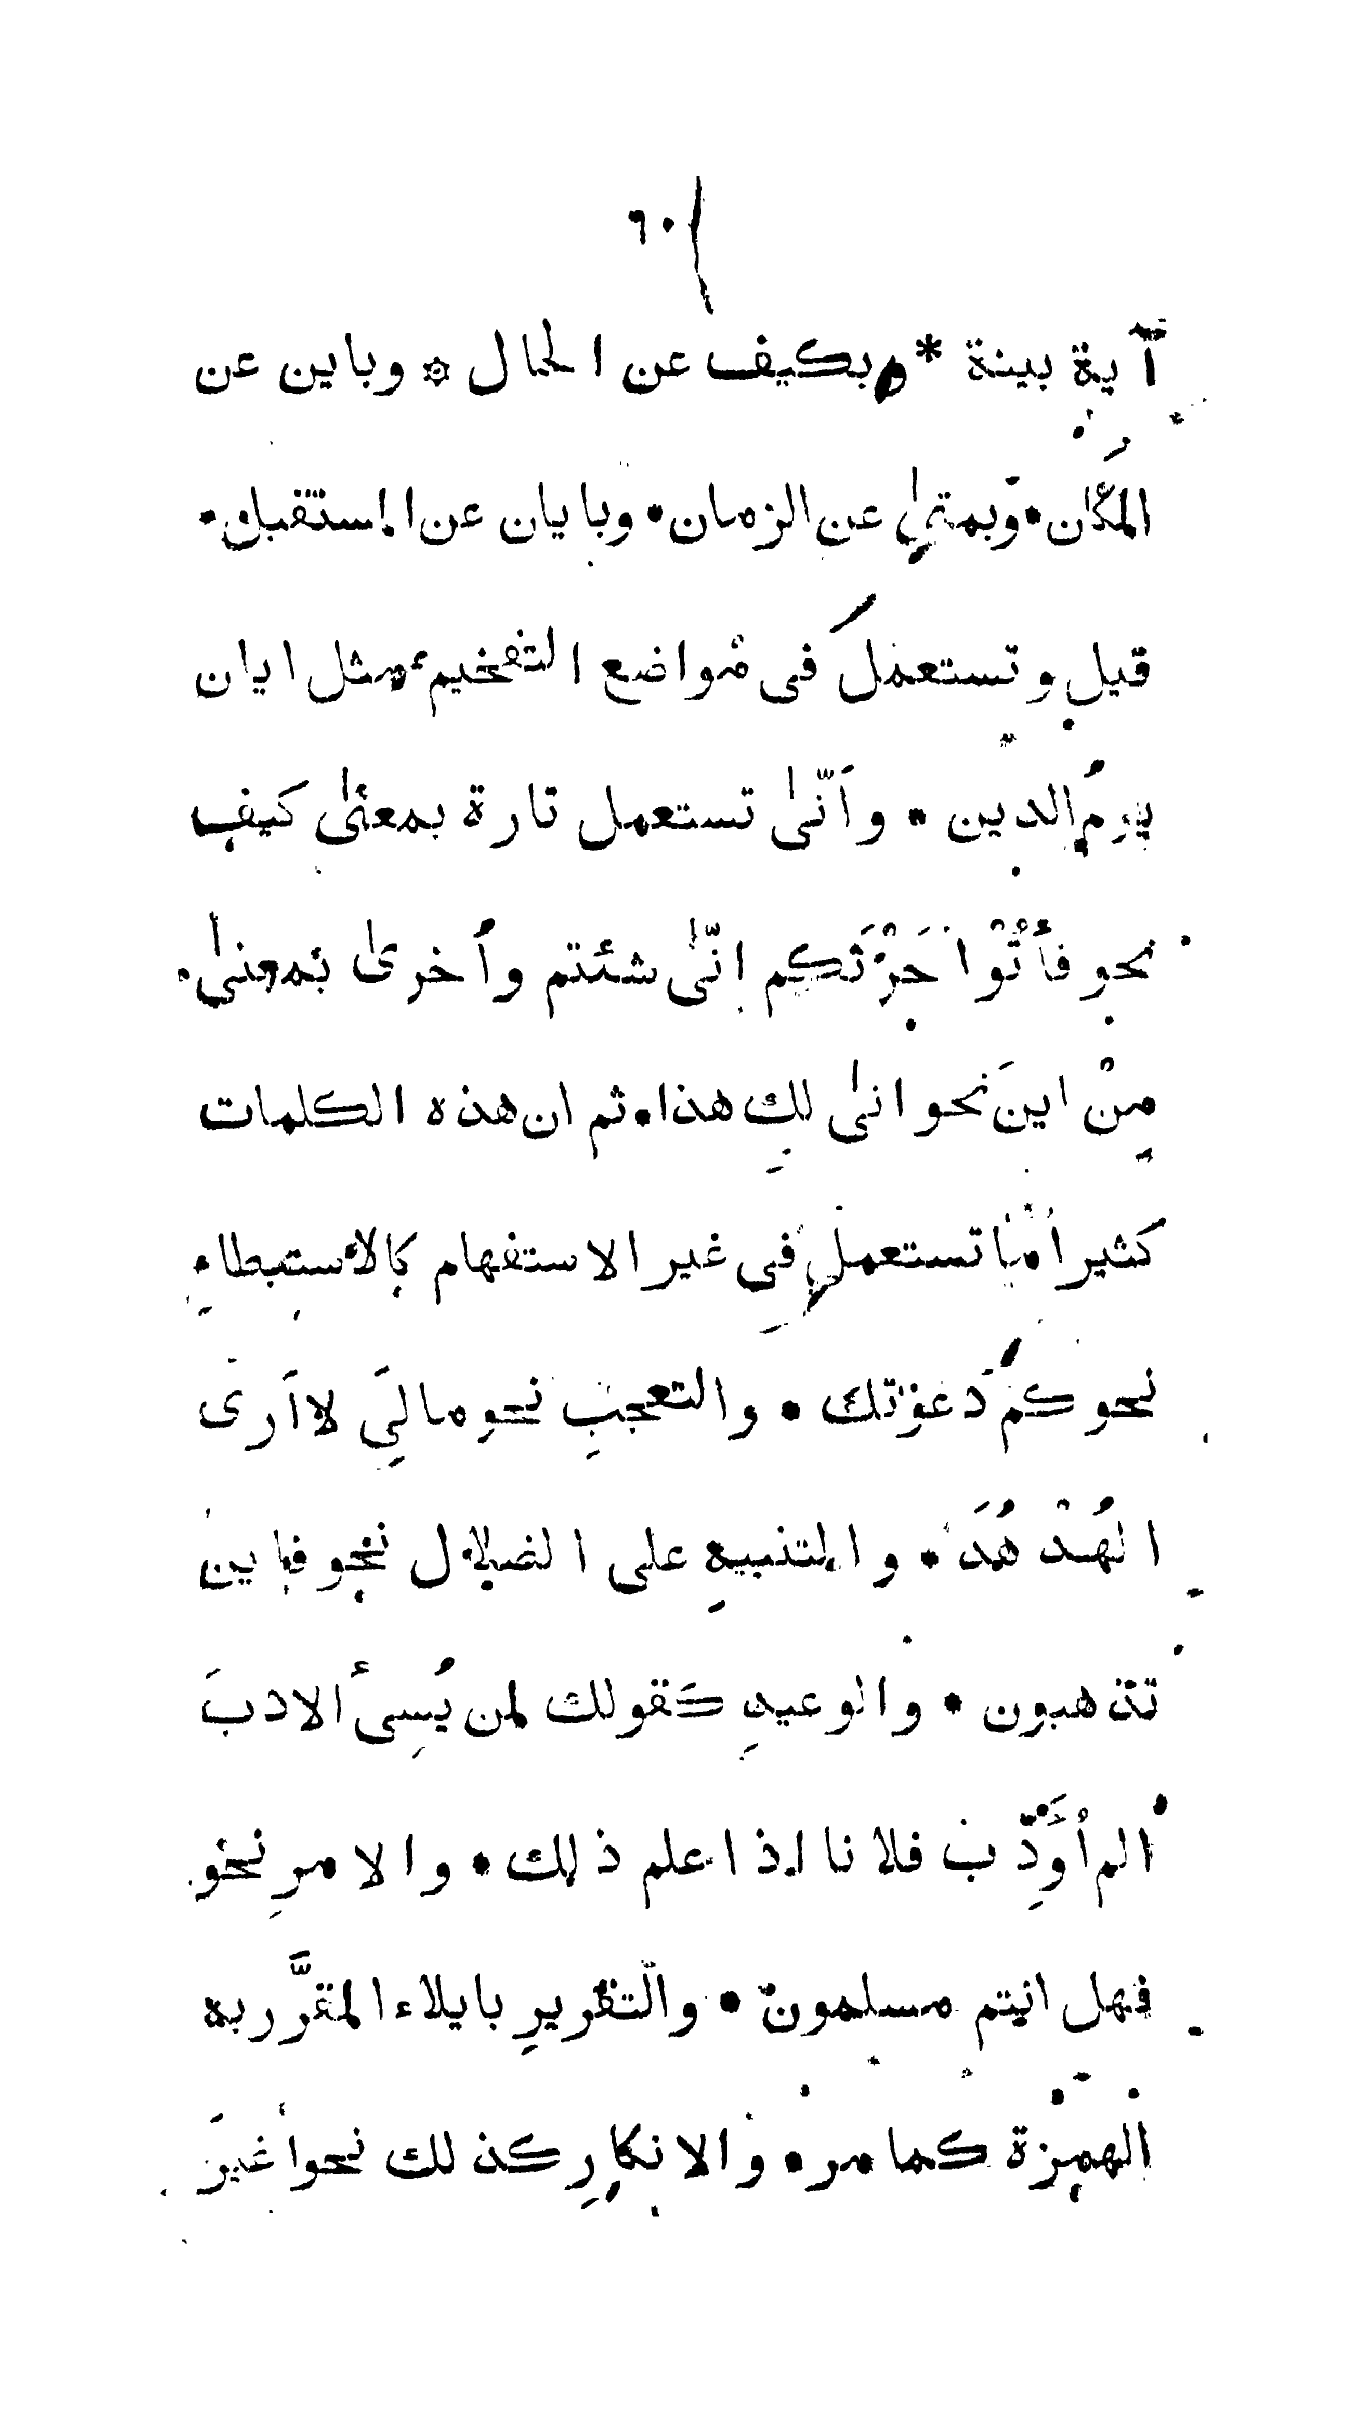 ٦٠
آية بينة * وبكيف عن الحال * وباين عن
المكان • وبمتىٰ عن الزمان • وبايان عن المستقبل •
قيل وتستعمل في مواضع التفخيم مثل ايان
يومُ الدين • وأَنّىٰ تستعمل تارة بمعنىٰ كيف
نحو فأْتُوْا حَرْثَكم انّىٰ شئتم وأُخرىٰ بمعنىٰ •
مِنْ اينَ نحو انىٰ لكِ هذا • ثم ان هذه الكلمات
كثيرا ما تستعمل في غير الاستفهام كالاستبطاءِ
نحو كم دَعوتك • والتعجبِ نحو مالِيَ لا اَرى
الهُدْهُدَ • والتنبيهِ على الضلال نحو فاين
تذهبون • والوعيدِ كَقولك لمن يُسِىءُ الادبَ
الم اُؤَدِّب فلانا اذا علم ذلك • والامرِ نحو
فهل انتم مسلمون • والتقريرِ بايلاء المقرَّر به
الهمزة كما مر • والانكارِ كذلك نحو اغيرَ